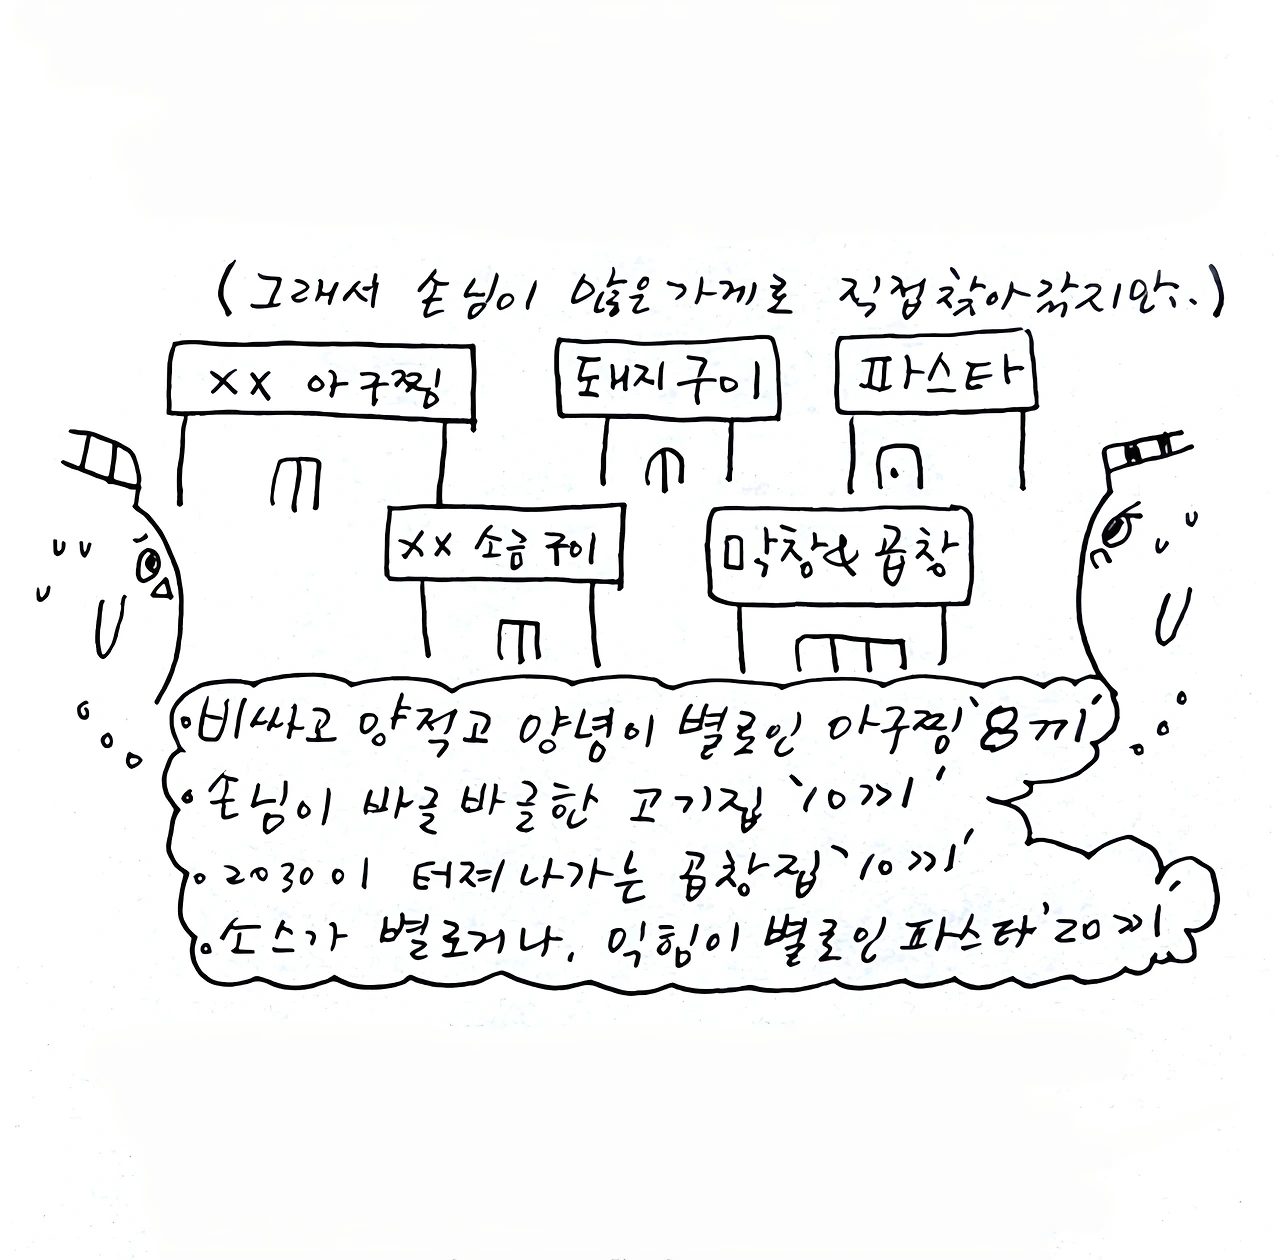 (그래서 손님이 많은가게로 직접찾아갔지만.)
xx 아구찜
돼지구이
파스타
xx 소금구이
막창& 곱창
◦비싸고 양적고 양념이 별로인 아구찜 '8끼'
◦손님이 바글바글한 고기집 '10끼'
◦2030이 터져나가는 곱창집 '10끼'
◦소스가 별로거나, 익힘이 별로인 파스타 '20끼'